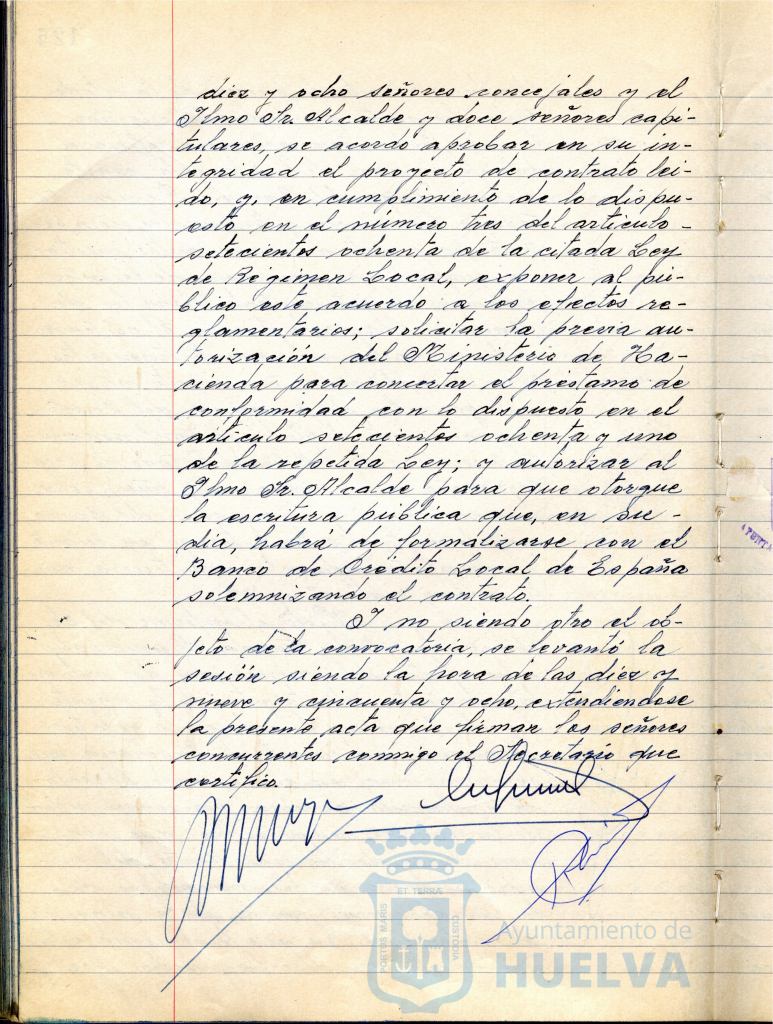 diez y ocho señores concejales y el
Ilmo Sr. Alcalde y doce señores capi-
tulares, se acordó aprobar en su in-
tegridad el proyecto de contrato lei-
do, y, en cumplimiento de lo dispu-
esto en el número tres del artículo
setecientos ochenta de la citada Ley
de Régimen Local, exponer al pú-
blico este acuerdo a los efectos re-
glamentarios; solicitar la previa au-
torización del Ministerio de Ha-
cienda para concertar el préstamo de
conformidad con lo dispuesto en el
artículo setecientos ochenta y uno
de la repetida Ley; y autorizar al
Ilmo Sr. Alcalde para que otorgue
la escritura pública que, en su
dia, habrá de formalizarse con el
Banco de Crédito Local de España
solemnizando el contrato.
I no siendo otro el ob-
jeto de la convocatoria, se levantó la
sesión siendo la hora de las diez y
nueve y cincuenta y ocho, extendiendose
la presente acta que firman los señores
concurrentes conmigo el Secretario que
certifico.
ET TERRÆ
PORTUS MARIS
CUSTODIA
Ayuntamiento de
HUELVA